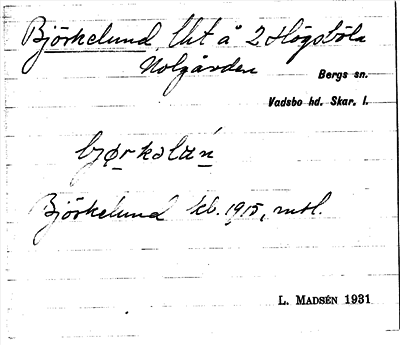 Björkelund, lht å 2 Högsböla
Nolgården
Bergs sn.
Vadsbo hd. Skar. l.
bjørkəlún
Björkelund kb. 1915, mtl.
L. MADSÉN 1931